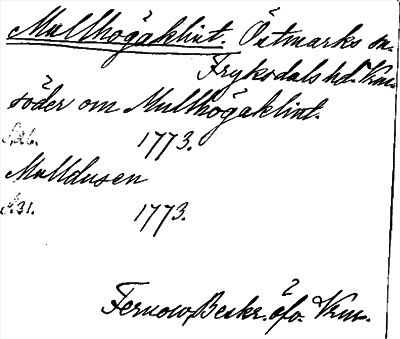 Mulhögaklint. Östmarks sn.
Fryksdals hd. Vrm.
söder om Mulhögaklint.
1773.
Mulldusen
s. 31. 1773.
Fernow Beskr. öfv. Vrm.